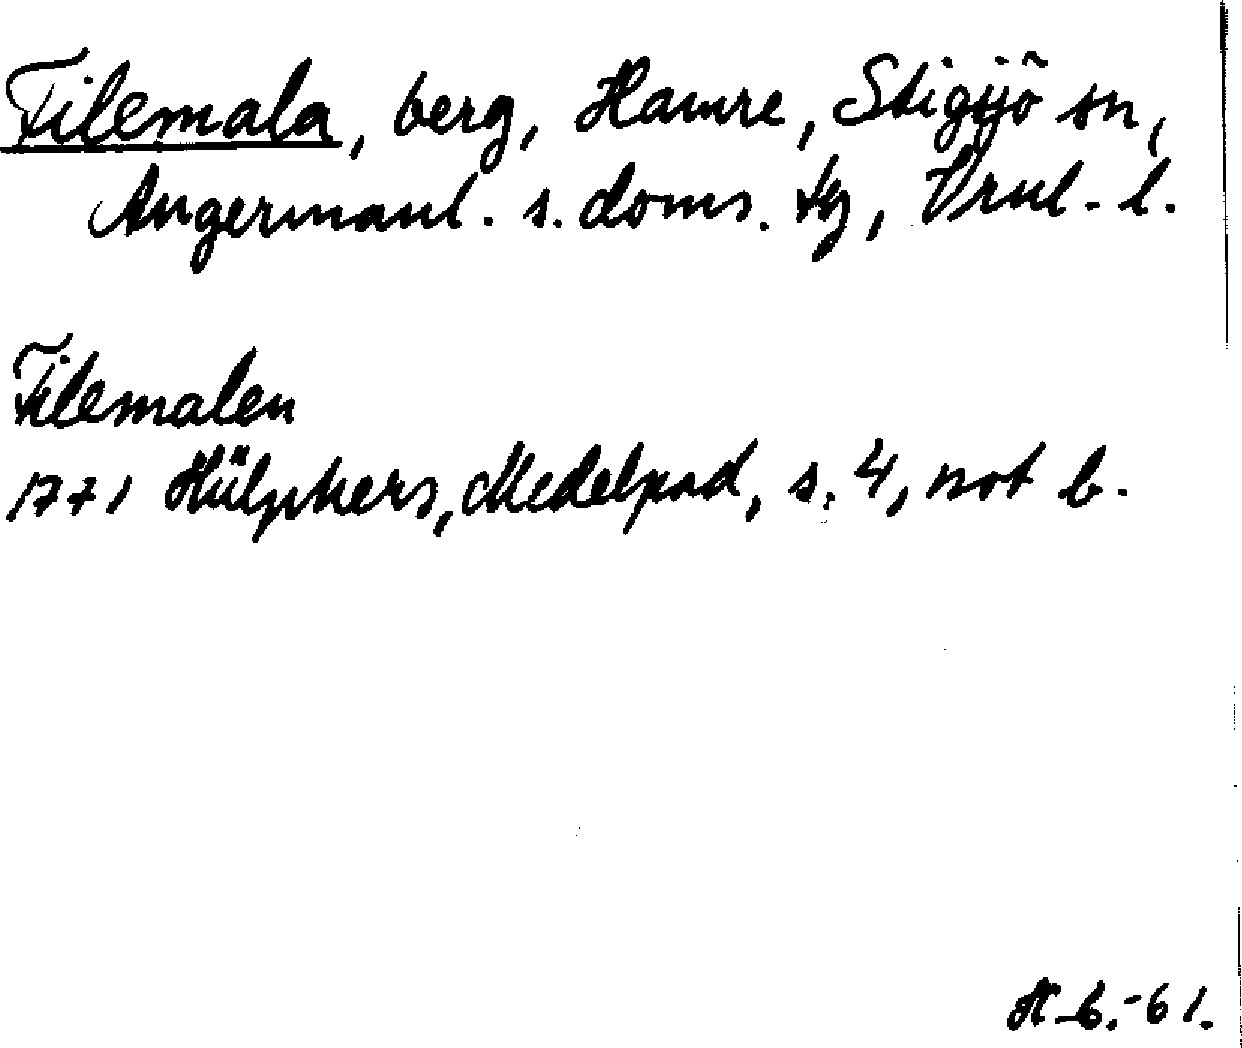 Filemala, berg, Hamre, Stigsjö sn,
Ångermanl. s. doms. tg, Vrnl. l.
Filemalen
1771 Hülphers, Medelpad, s. 4, not b.
H B.-61.